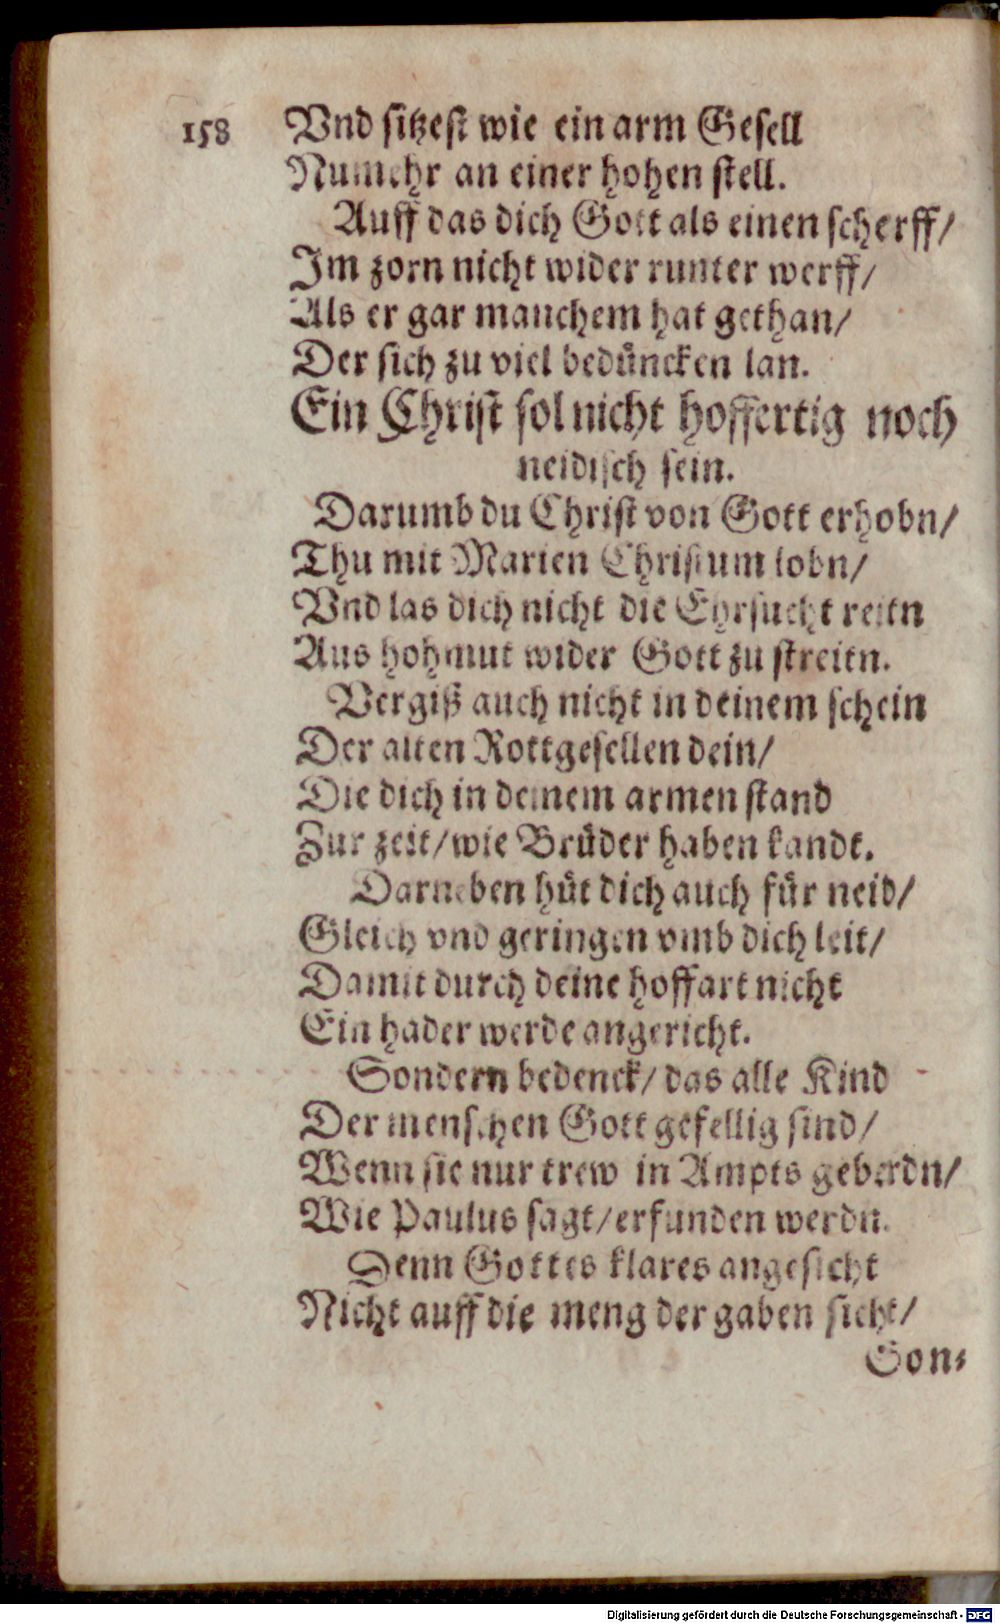 158 Vnd sitzest wie ein arm Gesell
Numehr an einer hohen stell.
Auff das dich Gott als einen scherff/
Im zorn nicht wider runter werff/
Als er gar manchem hat gethan/
Der sich zu viel bedüncken lan.
Ein Christ sol nicht hoffertig noch
neidisch sein.
Darumb du Christ von Gott erhobn/
Thu mit Marien Christum lobn/
Vnd las dich nicht die Ehrsucht reitn
Aus hohmut wider Gott zu streitn.
Vergiß auch nicht in deinem schein
Der alten Rottgesellen dein/
Die dich in deinem armen stand
Zur zeit/wie Brüder haben kandt.
Darneben hüt dich auch für neid/
Gleich vnd geringen vmb dich leit/
Damit durch deine hoffart nicht
Ein hader werde angericht.
Sondern bedenck/ das alle Kind
Der menschen Gott gefellig sind/
Wenn sie nur trew in Ampts geberdn/
Wie Paulus sagt/erfunden werdn.
Denn Gottes klares angesicht
Nicht auff die meng der gaben sicht/
Son⸗
Digitalisierung gefördert durch die Deutsche Forschungsgemeinschaft - DFG